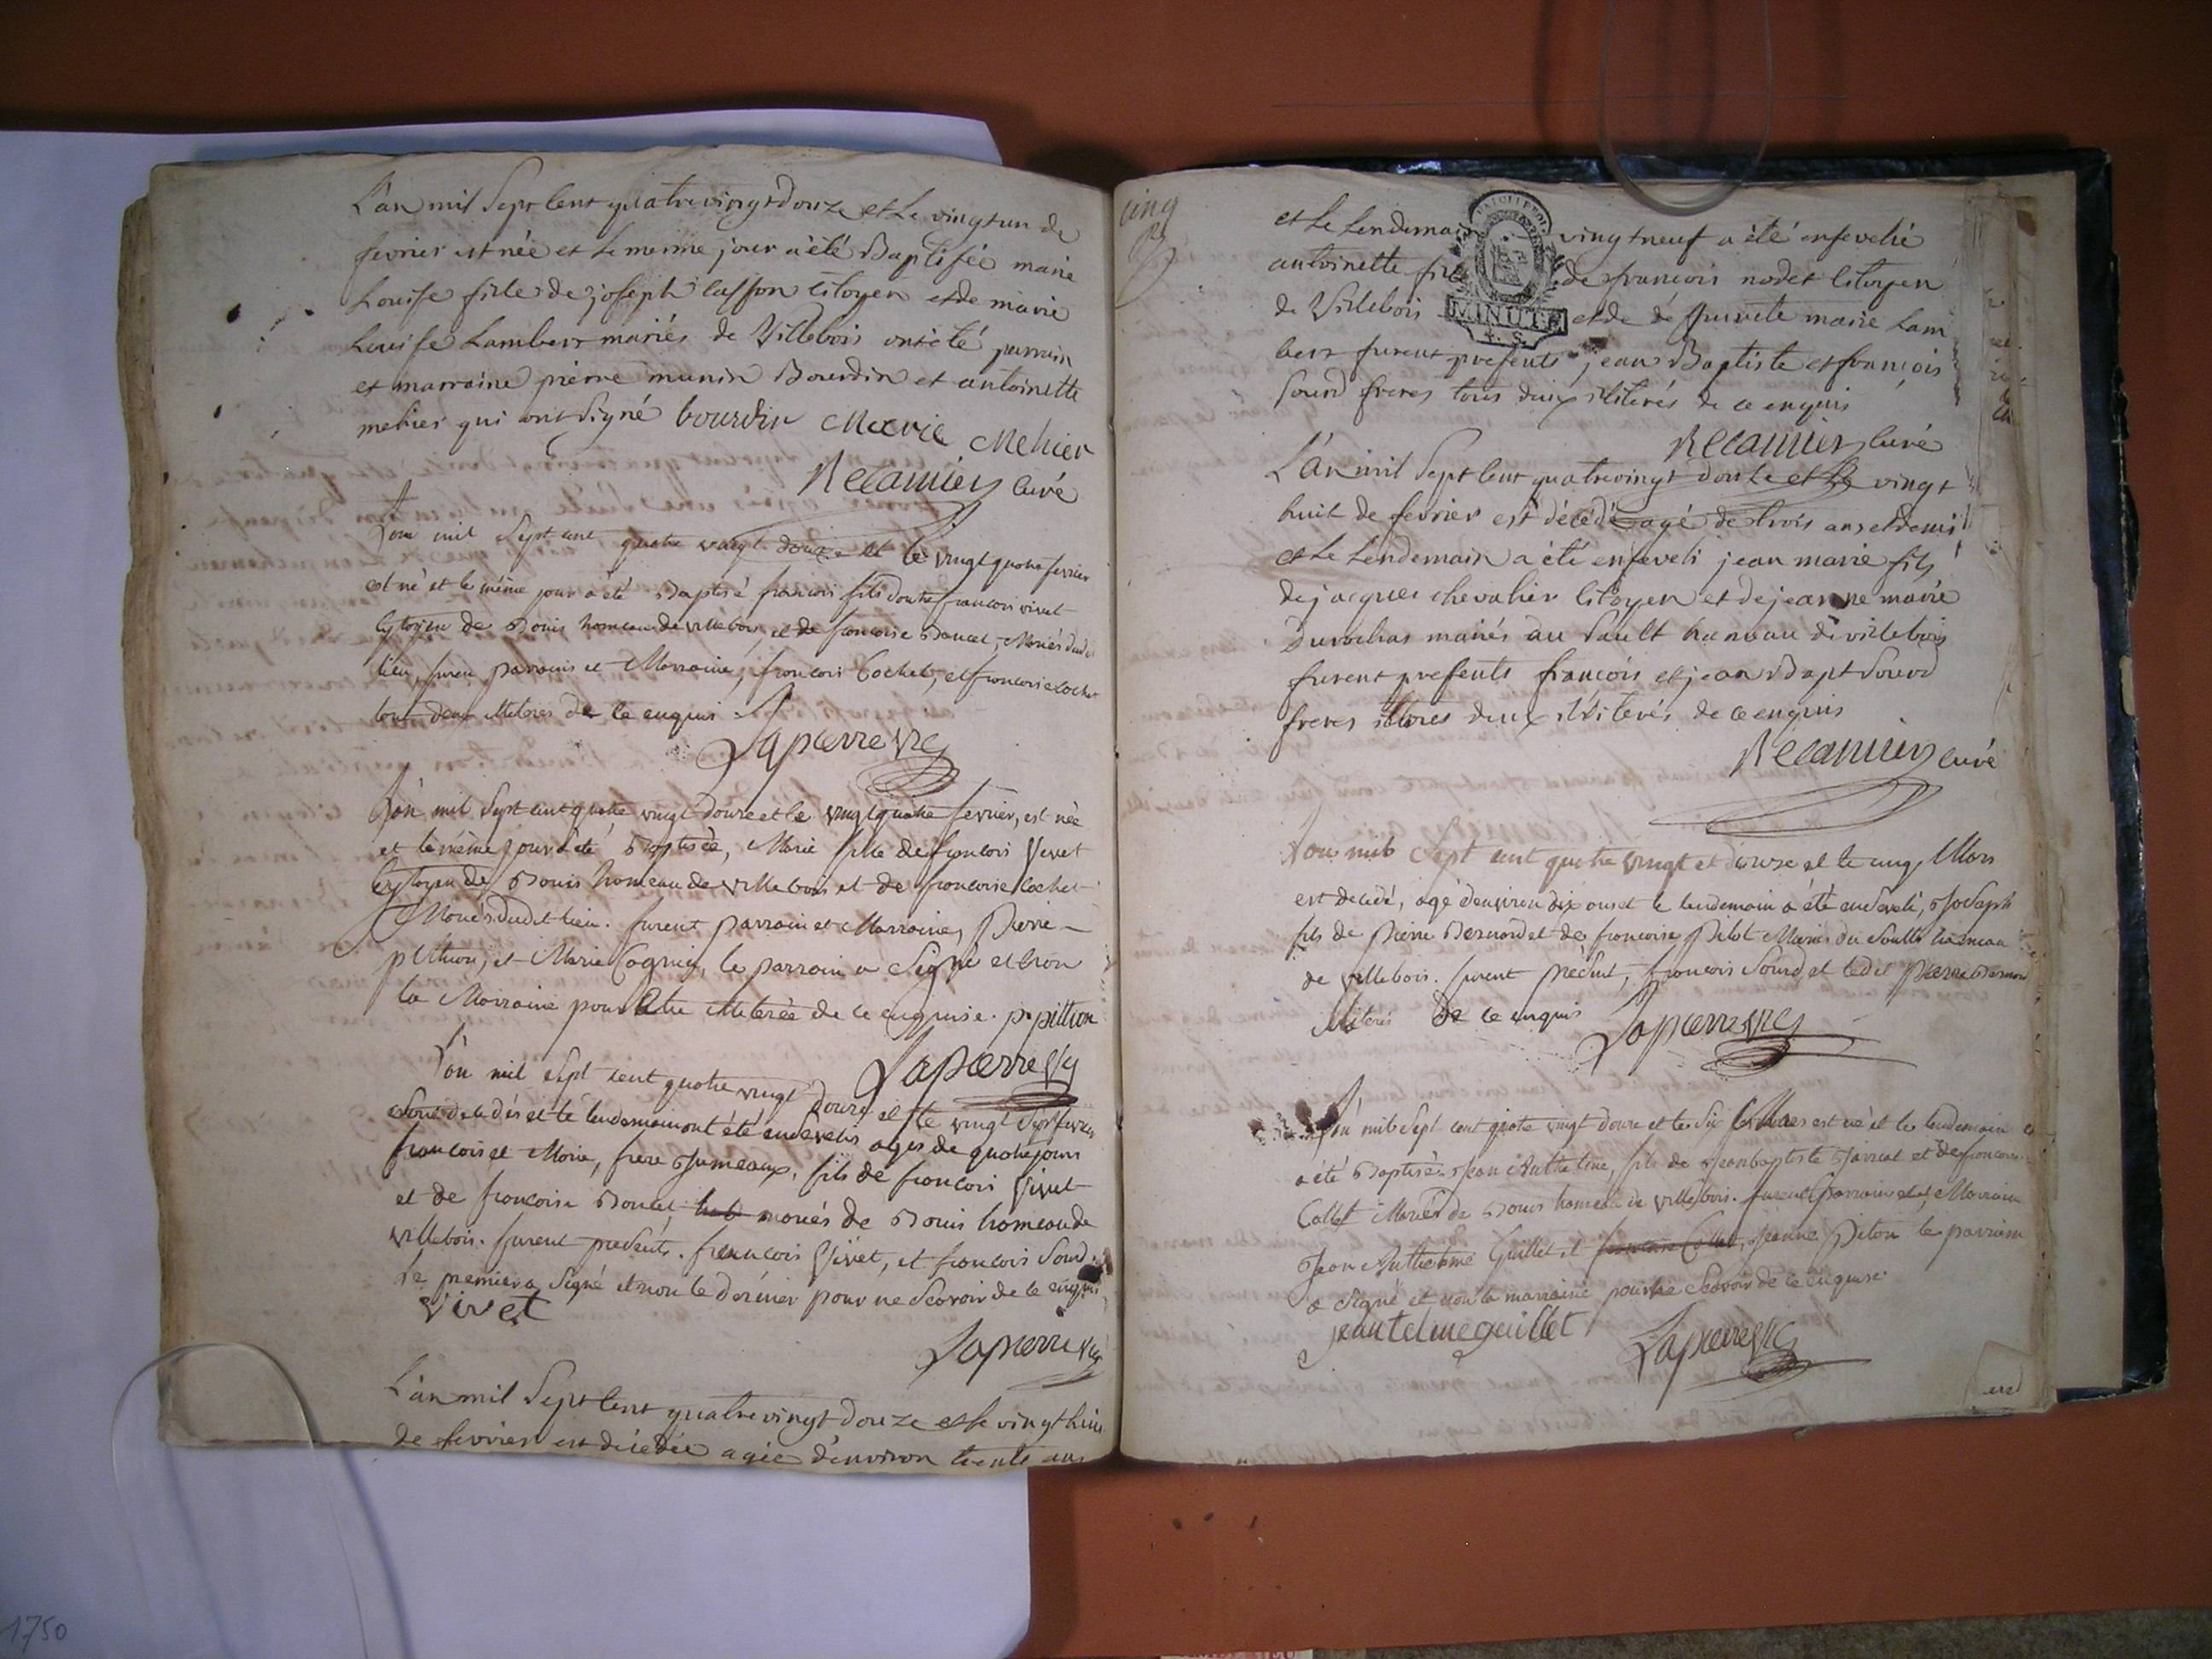 L'an mil Sept Cent quatrevingt douze et Le vingt un de
fevrier est née et Le meme jour a été Baptisée marie
Louise fille de joseph Casson Citoyen et de marie
Louise Lambert mariés de Villebois ont été parrain
et marraine pierre munin Bourdin et antoinette
mehier qui ont Signé bourdin Marie Mehier
Recamier curé
L'an mil Sept cent quatre vingt douze et le vingt quatre fevrier
est né et le même jour a été Baptisé francois fils d'autre francois vivet
Cytoyen de Bouis hameau de villebois, et de francoise Doucet, Mariés dudit
lieu, furent parrain et Marraine, francois Cochet, et francoise Cochet
tout deux illiteres de ce enquis
Lapierre Vic
L'an mil Sept cent quatre vingt douze et le vingt quatre fevrier, est née
et le même jour a été Baptisée, Marie fille de francois Vivet
Cytoyen de Bouis hameau de villebois et de francoise Cochet
Mariés dudit lieu. furent parrain et Marraine, Pierre
pithion, et Marie Cognier, le parrain a Signé et non
la Marraine pour être illiterée de ce enquise. p. pittion
Lapierre Vic
L'an mil Sept cent quatre vingt douze et le vingt Sept fevrier
Sont decedés et le lendemain ont été ensevelis agés de quatre jours
francois et Marie, frere Jumeaux, fils de francois Vivet
et de francoise Doucet mariés de Bouis hameau de
villebois. furent presents. francois Vivet, et francois Sourd.
le premier a Signé et non le dernier pour ne Scavoir de ce enquis
vivet
Lapierre Vic
L'an mil Sept Cent quatrevingt douze et Le vingt huit
de fevrier est décédée agée d'environ trente ans
cinq
et Le Lendemain vingt neuf a été ensevelie
antoinette fille de francois nodet Citoyen
de Villebois et de marie Lam
MINUTE
4. S.
bert furent presents jean Baptiste et francois
Sourd freres tous deux illiterés de ce enquis
Recamier Curé
L'an mil Sept Cent quatrevingt douze et Le vingt
huit de fevrier est décédé agé de trois ans et demi
et Le Lendemain a été enseveli jean marie fils
de jacques chevalier Citoyen et de jeanne marie
Durochas mariés au Sault hameau de villebois
furent presents francois et jean Bapt Sourd
freres deux illiterés de ce enquis
Recamier curé
L'an mil Sept cent quatre vingt et douze et le cinq Mars
est decedé, agé d'environ dix ans et le lendemain a été enseveli, Joseph
fils de Pierre Bernard et de francoise Pilot Mariés du Sault hameau
de villebois. furent présent, francois Sourd et ledit Pierre Bernard
illiterés de ce enquis
Lapierre Vic
L'an mil Sept cent quatre vingt douze et le Six Mars est né et le lendemain
a été Baptisé Jean Anthelme, fils de Jean baptiste Jaricot et de francoise
Collet Mariés de Bouis hameau de villebois. furent parrain et Marraine
Jean Anthelme Guillet et francoise Collet, Jeanne Piton le parrain
a Signé et non la marraine pour ne Scavoir de ce enquise
jean telme guillet
Lapierre Vic
1750